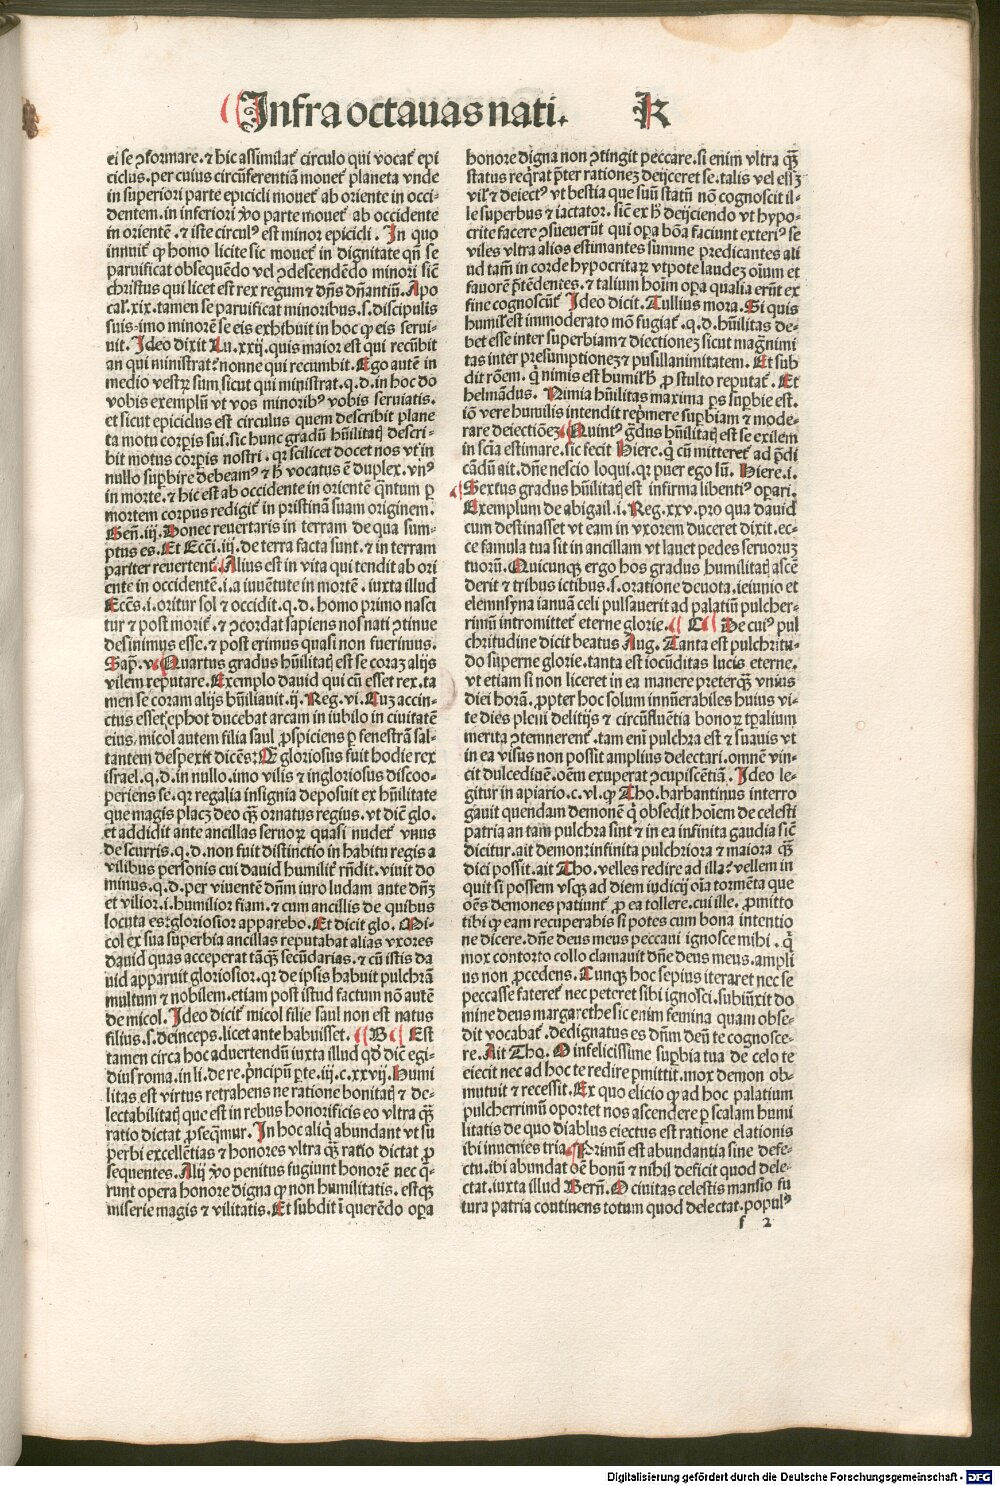 Infra octauas nati. K
ei se ꝯformare. ⁊ hic assimilat᷑ circulo qui vocat᷑ epi
ciclus. per cuius circūferentiā mouet᷑ planeta vnde
in superiori parte epicicli mouet᷑ ab oriente in occi-
dentem. in inferiori ꝟo parte mouet᷑ ab occidente
in orientē. ⁊ iste circulꝰ est minor epicicli. In quo
innuit᷑ ꝙ homo licite sic mouet᷑ in dignitate qn̄ se
paruificat obsequēdo vel ꝯdescendēdo minori sic̄
christus qui licet est rex regum ⁊ dn̄s dn̄antiū. Apo
cal̓. xix. tamen se paruificat minoribus. s. discipulis
suis. imo minorē se eis exhibuit in hoc ꝙ eis serui-
uit. Ideo dixit Lu. xxij. quis maior est qui recūbit
an qui ministrat? nonne qui recumbit. Ego autē in
medio vestrꝝ sum sicut qui ministrat. q. d. in hoc do
vobis exemplū vt vos minoribꝰ vobis seruiatis.
et sicut epiciclus est circulus quem describit plane
ta motu corꝑis sui. sic hunc gradū hūilitatꝭ descri-
bit motus corꝑis nostri. qꝛ scilicet docet nos vt in
nullo suꝑbire debeamꝰ ⁊ hꝰ vocatus ē duplex. vnꝰ
in morte. ⁊ hic est ab occidente in orientē q̄ntum ꝑ
mortem corpus redigit᷑ in pristinā suam originem.
Gen̄. iij. Donec reuertaris in terram de qua sum-
ptus es. Et Ecci̓. iij. de terra facta sunt. ⁊ in terram
pariter reuertent᷑. Alius est in vita qui tendit ab ori
ente in occidentē. i. a iuuētute in mortē. iuxta illud
Ecc̄s. i. oritur sol ⁊ occidit. q. d. homo primo nasci
tur ⁊ post morit᷑. ⁊ ꝯcordat sapiens nos nati ꝯtinue
desinimus esse. ⁊ post erimus quasi non fuerimus.
Sap̄. v. Quartus gradus hūilitatꝭ est se coraꝫ alijs
vilem reputare. Exemplo dauid qui cū esset rex. ta
men se coram alijs hūiliauit. ij. Reg. vi. Cuꝫ accin-
ctus esset ephot ducebat arcam in iubilo in ciuitatē
eius. micol autem filia saul ꝓspiciens ꝑ fenestrā sal-
tantem despexit dicēs: Q̄ gloriosus fuit hodie rex
israel. q. d. in nullo. imo vilis ⁊ ingloriosus discoo-
periens se. qꝛ regalia insignia deposuit ex hūilitate
que magis placꝫ deo qꝫ ornatus regius. vt dic̄ glo.
et addidit ante ancillas seruoꝝ quasi nudet᷑ vnus
de scurris. q. d. non fuit distinctio in habitu regis a
vilibus personis cui dauid humilit᷑ rn̄dit. viuit do
minus. q. d. per viuentē dn̄m iuro ludam ante dn̄ꝫ
et vilior. i. humilior fiam. ⁊ cum ancillis de quibus
locuta es: gloriosior apparebo. Et dicit glo. Mi-
col ex sua suꝑbia ancillas reputabat alias vxores
dauid quas acceperat tāqꝫ secūdarias. ⁊ cū istis da
uid apparuit gloriosior. qꝛ de ipsis habuit pulchrā
multum ⁊ nobilem. etiam post istud factum nō autē
de micol. Ideo dicit᷑ micol filie saul non est natus
filius. s. deinceps. licet ante habuisset. B Est
tamen circa hoc aduertendū iuxta illud qd̓ dic̄ egi-
dius roma. in li. de re. pͥncipū ꝑte. iij. c. xxvij. Humi
litas est virtus retrahens ne ratione bonitatꝭ ⁊ de-
lectabilitatꝭ que est in rebus honorificis eo vltra qꝫ
ratio dictat ꝓseqͣmur. In hoc aliqͥ abundant vt su
perbi excellētias ⁊ honores vltra qꝫ ratio dictat ꝓ
sequentes. Alij ꝟo penitus fugiunt honorē nec q̄-
runt opera honore digna ꝙ non humilitatis. estqꝫ
miserie magis ⁊ vilitatis. Et subdit ī querēdo oꝑa
honore digna non ꝯtingit peccare. si enim vltra qꝫ
status reqͥrat pter rationeꝫ deijceret se. talis vel essꝫ
vil̓ ⁊ deiectꝰ vt bestia que suū statū nō cognoscit il-
le superbus ⁊ iactator. sic̄ ex hꝰ deijciendo vt hypo-
crite facere ꝯsueuerūt qui oꝑa bōa faciunt exteriꝰ se
viles vltra alios estimantes summe predicantes ali
ud tam̄ in corde hypocritaꝝ vtpote laudeꝫ oīum et
fauorē p̄tēdentes. ⁊ talium hoīm oꝑa qualia erūt ex
fine cognoscūt᷑ Ideo dicit. Tullius mora. Si quis
humil̓ est immoderato mō fugiat᷑. q. d. hūilitas de-
bet esse inter superbiam ⁊ diectioneꝫ sicut mag̓nimi
tas inter presumptioneꝫ ⁊ pusillanimitatem. Et sub
dit rōem. qͥ nimis est humil̓ hꝰ ꝓ stulto reputat᷑. Et
helmādus. Nimia hūilitas maxima ꝑs suꝑbie est.
iō vere humilis intendit repͥmere suꝑbiam ⁊ mode-
rare deiectiōeꝫ Quintꝰ gͣdus hūilitatꝭ est se exilem
in scīa estimare. sic fecit Hiere. qͥ cū mitteret᷑ ad p̄di
cādū ait. dn̄e nescio loqui. qꝛ puer ego sū. Hiere. i.
Sextus gradus hūilitatꝭ est infirma libentiꝰ oꝑari.
Exemplum de abigail. i. Reg. xxv. pro qua dauid
cum destinasset vt eam in vxorem duceret dixit. ec-
ce famula tua sit in ancillam vt lauet pedes seruoruꝫ
tuorū. Quicunqꝫ ergo hos gradus humilitatꝭ ascē
derit ⁊ tribus ictibus. s. oratione deuota. ieiunio et
elemosyna ianuā celi pulsauerit ad palatiū pulcher-
rimū intromittet᷑ eterne glorie. C De cuiꝰ pul
chritudine dicit beatus Aug. Tanta est pulchritu-
do suꝑerne glorie. tanta est iocūditas lucis eterne.
vt etiam si non liceret in ea manere preterqꝫ vnius
diei horā. ꝓpter hoc solum innūerabiles huius vi-
te dies pleni delitijs ⁊ circūfluētia honoꝝ tꝑalium
merita ꝯtemnerent᷑. tam eni pulchra est ⁊ suauis vt
in ea visus non possit amplius delectari. omnē vin-
cit dulcedinē. oēm exuperat ꝯcupiscētiā. Ideo le-
gitur in apiario. c. vl. ꝙ Tho. barbantinus interro
gauit quendam demonē qͥ obsedit hoīem de celesti
patria an tam pulchra sint ⁊ in ea infinita gaudia sic̄
dicitur. ait demon: infinita pulchriora ⁊ maiora qꝫ
dici possit. ait Tho. velles redire ad illa? vellem in
quit si possem vsqꝫ ad diem iudicij oīa tormēta que
oēs demones patiunt᷑ ꝓ ea tollere. cui ille. ꝓmitto
tibi ꝙ eam recuperabis si potes cum bona intentio
ne dicere. dn̄e deus meus peccaui ignosce mihi. qͥ
mox contorto collo clamauit dn̄e deus meus. ampli
us non ꝓcedens. Cunqꝫ hoc sepius iteraret nec se
peccasse fateret᷑ nec peteret sibi ignosci. subiūxit do
mine deus margarethe sic enim femina quam obse-
dit vocabat᷑. dedignatus es dn̄m deū te cognosce-
re. Ait Tho. O infelicissime suꝑbia tua de celo te
eiecit nec ad hoc te redire ꝑmittit. mox demon ob-
mutuit ⁊ recessit. Ex quo elicio ꝙ ad hoc palatium
pulcherrimū oportet nos ascendere ꝑ scalam humi
litatis de quo diablus eiectus est ratione elationis
ibi inuenies tria. Primū est abundantia sine defe-
ctu. ibi abundat oē bonū ⁊ nihil deficit quod dele-
ctat. iuxta illud Bern̄. O ciuitas celestis mansio fu
tura patria continens totum quod delectat. populꝰ
f 2
Digitalisierung gefördert durch die Deutsche Forschungsgemeinschaft - DFG